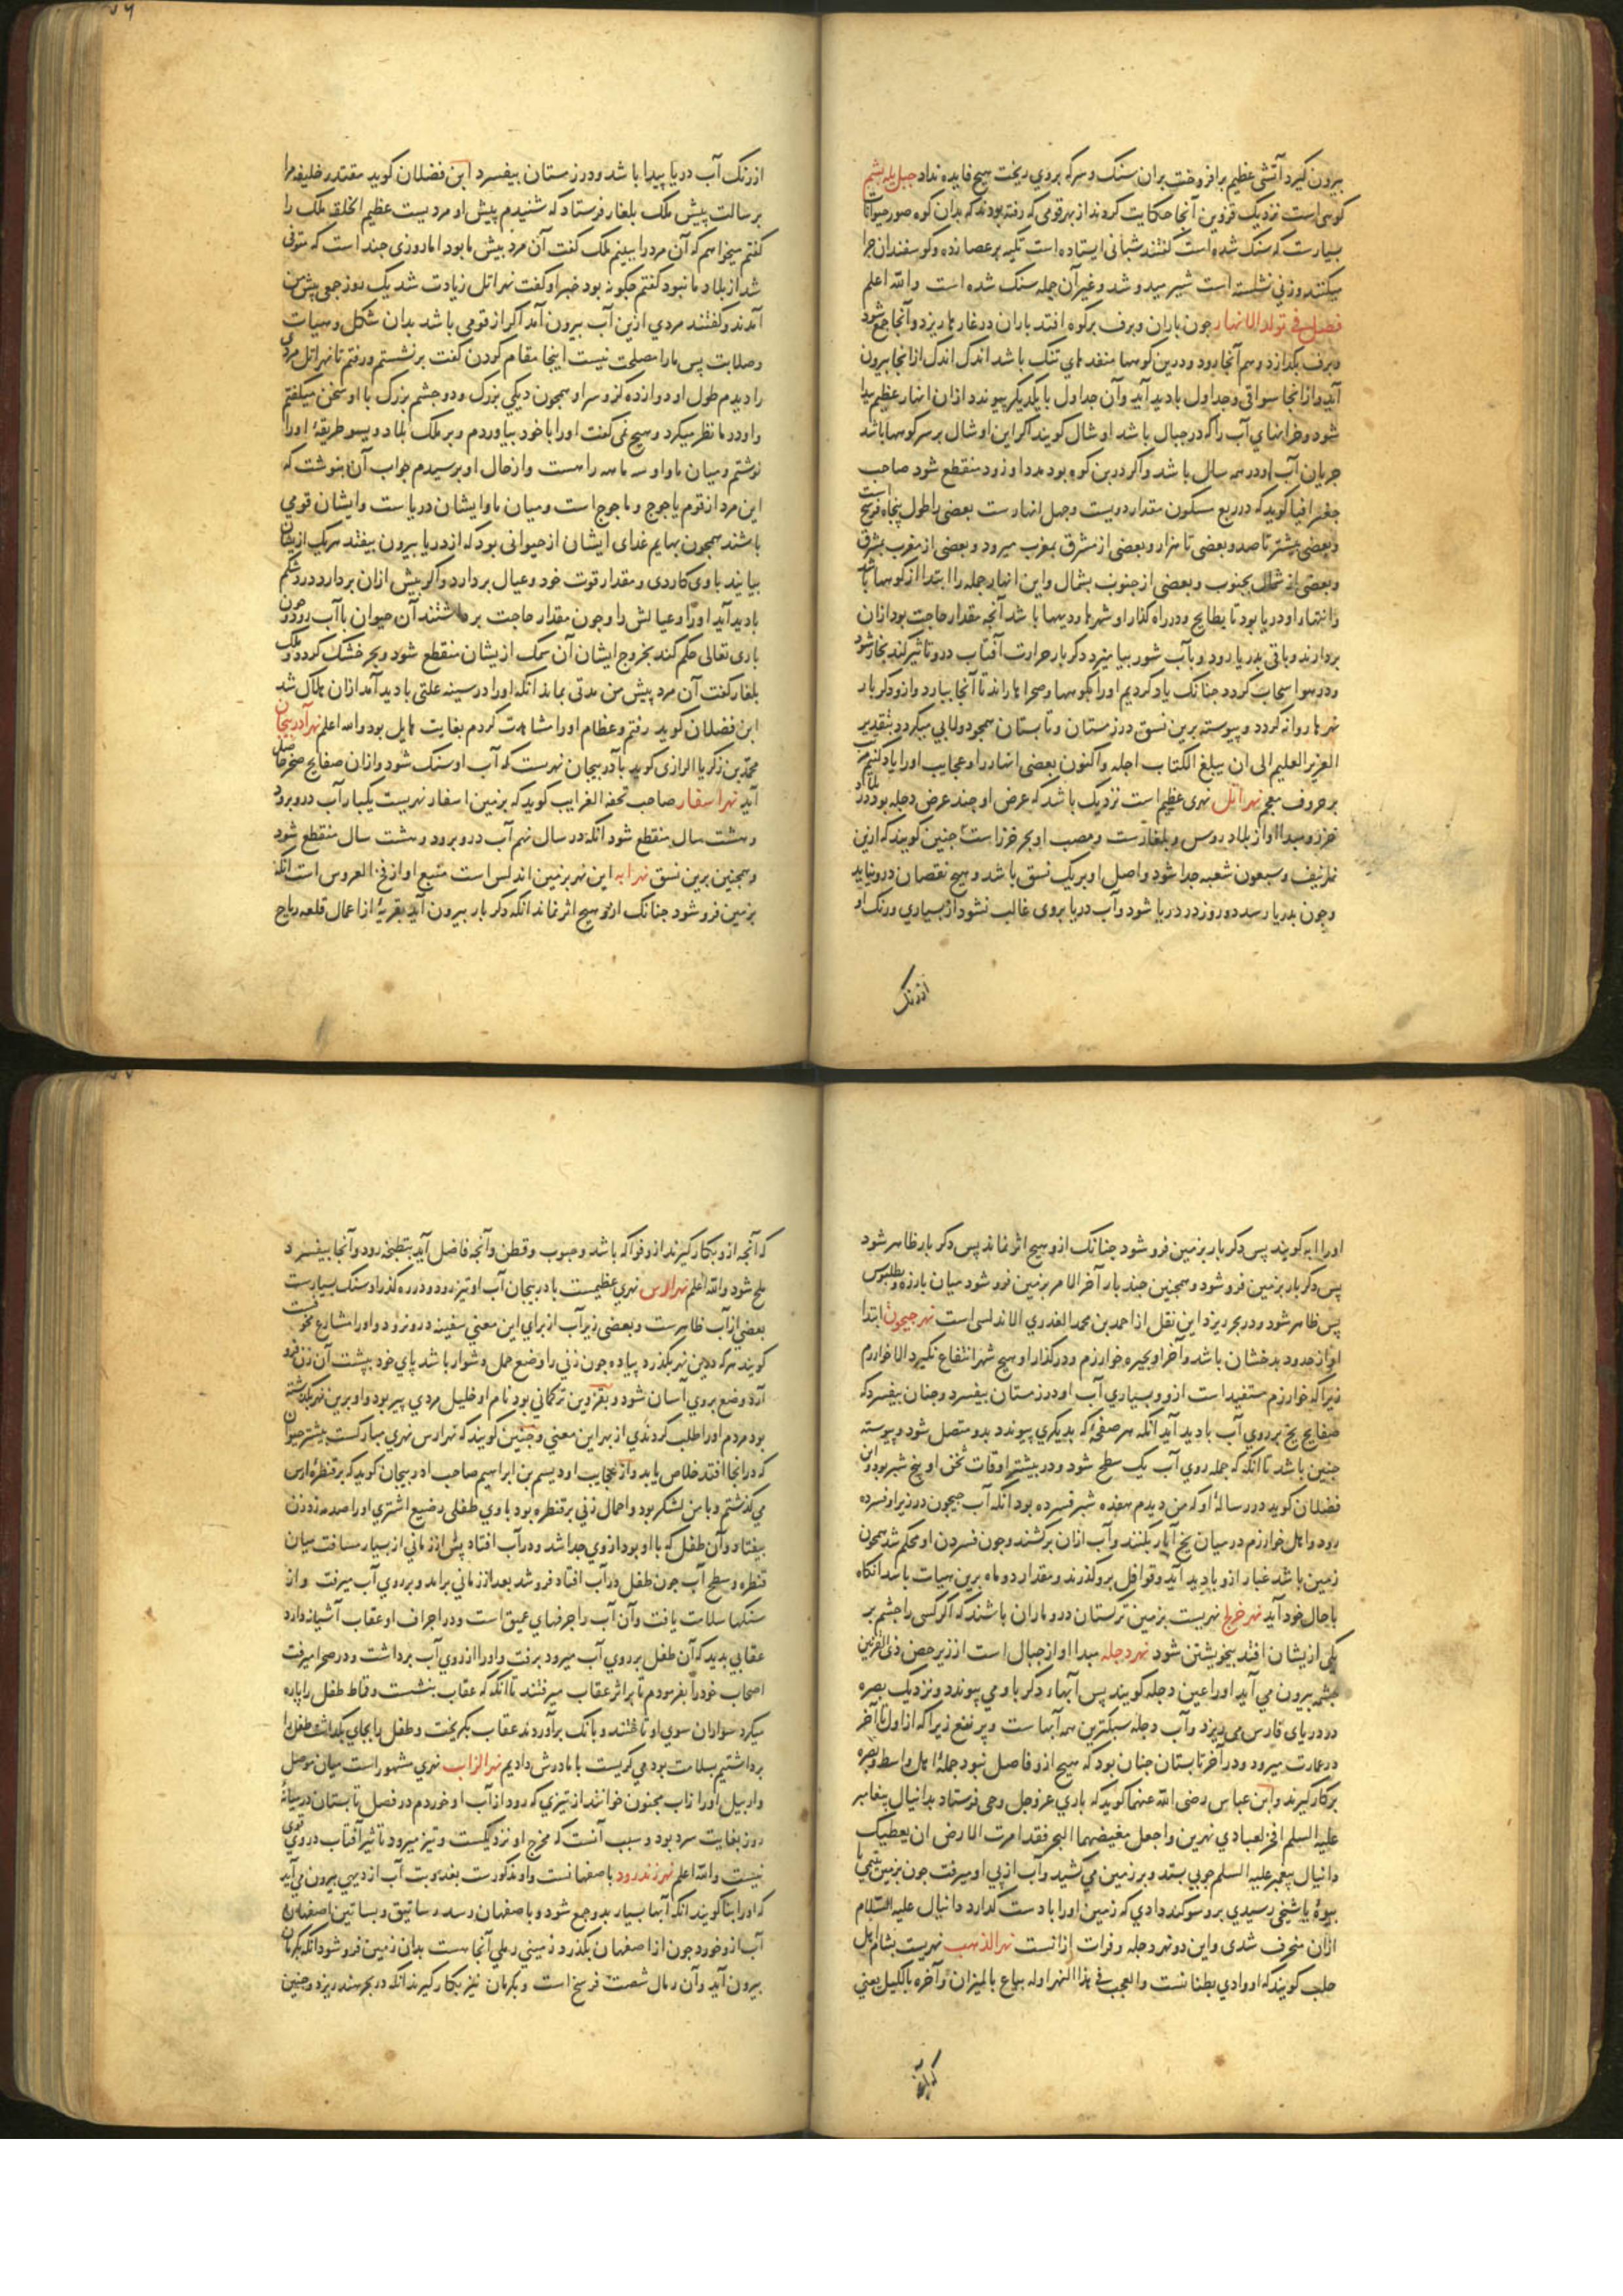 بیرون کیرد آتشی عظیم برافروخت بران سنک و سرکه بروی ریخت هیچ فایده نداد جبل یله بشم
کوهی است نزدیک قزوین آنجا حکایت کردند از بهر قومی که رفته بودند که بدان کوه صور حیوانات
بسیارست که سنک شده است کفتند شبانی ایستاده است تکیه بر عصا زده و کوسفندان چرا
میکنند و زنی نشسته است شیر میدوشد و غیر آن جمله سنک شده است والله اعلم
فصل فی تولد الانهار چون باران و برف بر کوه افتد باران در غارها ریزد و آنجا جمع شود
و برف بکدازد و هم آنجا رود و درین کوهها منفدهای تنک باشد اندک اندک از انجا بیرون
آید و از انجا سواقی و جداول بادید آید و آن جداول با یکدیکر پیوندد ازان انهار عظیم پیدا
شود و خزانهای آب را که در جبال باشد اوشال کویند اکر این اوشال بر سر کوهها باشد
جریان آب او در همه سال باشد و اکر در بن کوه بود مدد او زود منقطع شود صاحب
جغرافیا کوید که در ربع مسکون مقدار دویست و چهل انهارست بعضی را طول پنجاه فرسخ است
و بعضی بیشتر تا صد و بعضی تا هزار و بعضی از مشرق بمغرب میرود و بعضی از مغرب بمشرق
و بعضی از شمال بجنوب و بعضی از جنوب بشمال و این انهار جمله را ابتدا از کوهها باشد
و انتهاء او دریا بود تا بطایح و در راه کذار او شهرها و دیهها باشد آنچه مقدار حاجت بود ازان
بردارند و باقی بدریا رود و بآب شور بیامیزد دکر بار حرارت آفتاب درو تاثیر کند بخار شود
و در هوا سحاب کردد چنانک یاد کردیم اورا بکوهها و صحراها راند تا آنجا ببارد و ازو دکر بار
نهرها روانه کردد و پیوسته برین نسق در زمستان و تابستان همچو دولابی میکردد بتقدیر
العزیز العلیم الی ان یبلغ الکتاب اجله و اکنون بعضی انهار را و عجایب اورا یاد کنیم مرتب
بر حروف معجم نهر اتل نهری عظیم است نزدیک باشد که عرض او چند عرض دجله بود در بلاد
خزر و مبدا او از بلاد روس و بلغارست و مصب او بحر خزر است چنین کویند که ازین
نهر نیف و سبعون شعبه جدا شود و اصل او بر یک نسق باشد و هیچ نقصان درو نیاید
و چون بدریا رسد دو روز در دریا شود و آب دریا بروی غالب نشود از بسیاری و رنک او
از رنک
از رنک آب دریا پیدا باشد و در زمستان بیفسرد ابن فضلان کوید مقتدر خلیفه مرا
برسالت پیش ملک بلغار فرستاد که شنیدم پیش او مردیست عظیم الخلقه ملک را
کفتم میخواهم که آن مرد را ببینم ملک کفت آن مرد پیش ما بود اما روزی چند است که متوفی
شد از بلاد ما نبود کفتم چکونه بود خبر او کفت نهر اتل زیادت شد یک روز جمعی پیش من
آمدند و کفتند مردی ازین آب بیرون آمد اکر از قومی باشد بدان شکل و هیات
و صلابت پس مارا مصلحت نیست اینجا مقام کردن کفت برنشستم و رفتم تا نهر اتل مردی
را دیدم طول او دوازده کز و سر او همچون دیکی بزرک و دو چشم بزرک با او سخن میکفتم
و او در ما نظر میکرد و هیچ نمی کفت اورا با خود بیاوردم و بر ملک بلاد ویسو طریقهٔ اورا
نوشتم و میان ما و او سه ماهه راهست و از حال او پرسیدم جواب آن بنوشت که
این مرد از قوم یاجوج و ماجوج است و میان ما و ایشان دریا ست و ایشان قومی
باشند همچون بهایم غدای ایشان از حیوانی بود که از دریا بیرون بیفتد هریک ازیشان
بیایند با وی کاردی و مقدار قوت خود و عیال بردارد و اکر بیش ازان بردارد درد شکم
بادید آید اورا و عیالش را و چون مقدار حاجت برداشتند آن حیوان با آب رود و چون
باری تعالی حکم کند بخروج ایشان آن سمک ازیشان منقطع شود و بحر خشک کردد و ملک
بلغار کفت آن مرد پیش من مدتی بماند انکه اورا در سینه علتی بادید آمد ازان هلاک شد
ابن فضلان کوید رفتم و عظام اورا مشاهدت کردم بغایت هایل بود والله اعلم نهر آذربیجان
محمد بن زکریا الرازی کوید بآذربیجان نهرست که آب او سنک شود و ازان صفایح صخر حاصل
آید نهر اسفار صاحب تحفه الغرایب کوید که بزمین اسفار نهریست یکبار آب درو برود
و هشت سال منقطع شود انکه در سال نهم آب درو برود و هشت سال منقطع شود
و همچنین برین نسق نهر ابه این نهر بزمین اندلس است منبع او از فج العروس است انکه
بزمین فرو شود چنانک ازو هیچ اثر نماند انکه دکر بار بیرون آید بقریهٔ از اعمال قلعه رباح
اورا ابه کویند پس دکر بار بزمین فرو شود چنانک ازو هیچ اثر نماند پس دکر بار ظاهر شود
پس دکر بار بزمین فرو شود و همچنین چند بار آخر الامر بزمین فرو شود میان بارزه و بطلیوس
پس ظاهر شود و در بحر ریزد این نقل از احمد بن محمد العذری الاندلسی است نهر جیحون ابتدا
او از حدود بدخشان باشد و آخر او بحیره خوارزم و در کذار او هیچ شهر انتفاع نکیرد الا خوارزم
زیرا که خوارزم مستفید است ازو و بسیاری آب او در زمستان بیفسرد و چنان بیفسرد که
صفایح یخ بر روی آب بادید آید انکه هر صفحهٔ که بدیکری پیوندد بدو متصل شود و پیوسته
چنین باشد تا انکه که جمله روی آب یک سطح شود و در بیشتر اوقات ثخن او پنج شبر بود و ابن
فضلان کوید در رسالهٔ او که من دیدم هفده شبر فسرده بود انکه آب جیحون در زیر او نفسرده
رود و اهل خوارزم در میان یخ آبار بکنند و آب ازان برکشند و چون فسردن او محکم شد همچون
زمین باشد غبار ازو بادید آید و قوافل برو کذرند و مقدار دو ماه برین هیات باشد انکاه
باحال خود آید نهر خرلخ نهریست بزمین ترکستان درو ماران باشند که اکر کسی را چشم بر
یکی ازیشان افتد بیخویشتن شود نهر دجله مبدا او از جبال است از زیر حصن ذی القرنین
چشمه بیرون می آید اورا عین دجله کویند پس آبهاء دکر باو می پیوندد و نزدیک بصره
در دریای فارس می ریزد و آب دجله سبکترین همه آبها ست و پر نفع زیرا که از اول تا آخر
در عمارت میرود و در آخر تابستان چنان بود که هیچ ازو فاضل نبود جملهٔ اهل واسط و بصره
برکار کیرند و ابن عباس رضی الله عنهما کوید که باری عز و جل وحی فرستاد بدانیال پیغامبر
علیه السلم افجر لعبادی نهرین و اجعل مغیضهما البحر فقد امرت الارض ان یعطیک
دانیال پیغمبر علیه السلم چوبی بستد و بر زمین می کشید و آب از پی او میرفت چون بزمین یتیمی یا
بیوهٔ یا شیخی رسیدی برو سوکند دادی که زمین اورا بادست کدارد دانیال علیه السلام
ازان منحرف شدی و این دو نهر دجله و فرات ازانست نهر الذهب نهریست بشام اهل
حلب کویند که او وادی بطنانست والعجب فی هذا النهر اوله یباع بالمیزان و آخره بالکیل یعنی
که آنچه
که آنچه ازو بکار کیرند ازو فواکه باشد و حبوب و قطن و آنچه فاضل آید بتطیحه رود و آنجا بیفسرد
ملح شود والله اعلم نهر الارس نهری عظیمست بادربیجان آب او تیز رود و در ره کذر او سنک بسیارست
بعضی از آب ظاهرست و بعضی زیر آب از برای این معنی سفینه درو نرود و اورا مشارع مخوفست
کویند هرکه درین نهر بکذرد پیاده چون زنی را وضع حمل دشوار باشد پای خود بپشت آن زن فرو
آرد وضع بروی آسان شود و بقزوین ترکمانی بود نام او خلیل مردی پیر بود و او برین نهر بکذشته
بود مردم اورا طلب کردندی از بهر این معنی و چنین کویند که نهر ارس نهری مبارکست بیشتر حیوان
که در انجا افتد خلاص یابد و از عجایب او دیسم بن ابراهیم صاحب ادربیجان کوید که بر قنطرهٔ ارس
می کذشتم و با من لشکر بود و احمال زنی بر قنطره بود با وی طفلی رضیع اشتری اورا صدمه زد زن
بیفتاد و آن طفل که با او بود از وی جدا شد و در آب افتاد پس از زمانی از بسیار مسافت میان
قنطره و سطح آب چون طفل در آب افتاد فرو شد بعد از زمانی برامد و بر روی آب میرفت و از
سنکها سلامت یافت و آن آب را جرفهای عمیق است و در اجراف او عقاب آشیانه دارد
عقابی بدید که آن طفل بر روی آب میرود برفت و اورا از روی آب برداشت و در صحرا میرفت
اصحاب خود را بفرمودم تا بر اثر عقاب میرفتند تا انکه که عقاب بنشست و قماط طفل را پاره
میکرد سواران سوی او تاختند و بانک برآوردند عقاب بکریخت و طفل را بجای بکذاشت طفل را
برداشتیم بسلامت بود می کریست با مادرش دادیم نهر الزاب نهری مشهور است میان موصل
و اربیل اورا زاب مجنون خوانند از تیزی که رود از آب او خوردم در فصل تابستان در میانهٔ
روز بغایت سرد بود و سبب آنست که مخرج او نزدیکست و تیز میرود تا ثیر آفتاب در وی قوی
نیست والله اعلم نهر زندرود باصفهانست و او مذکورست بعذوبت آب از دیهی بیرون می آید
که اورا بناکویند انکه آبها بسیار بدو جمع شود و باصفهان رسد رساتیق و بساتین اصفهان
آب ازو خورد چون از اصفهان بکذرد و زمینی رملی آنجا هست بدان زمین فرو شود انکه بکرمان
بیرون آید و آن رمال شصت فرسخ است و بکرمان نیز بکار کیرند انکه در بحر هند ریزد و چنین